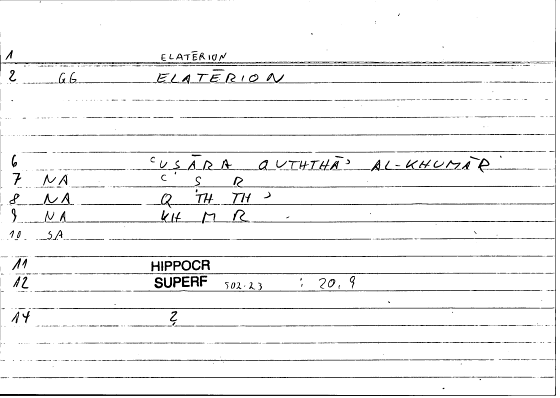 1 ELATĒRION
2 GG ELATĒRION
6 ʿUSĀRA QUTHTHĀʾ AL-KHUMĀR
7 NA ʿ S R
8 NA Q TH TH ʾ
9 NA KH M R
10 SA
11 HIPPOCR
12 SUPERF 502.23 : 20,9
14 2